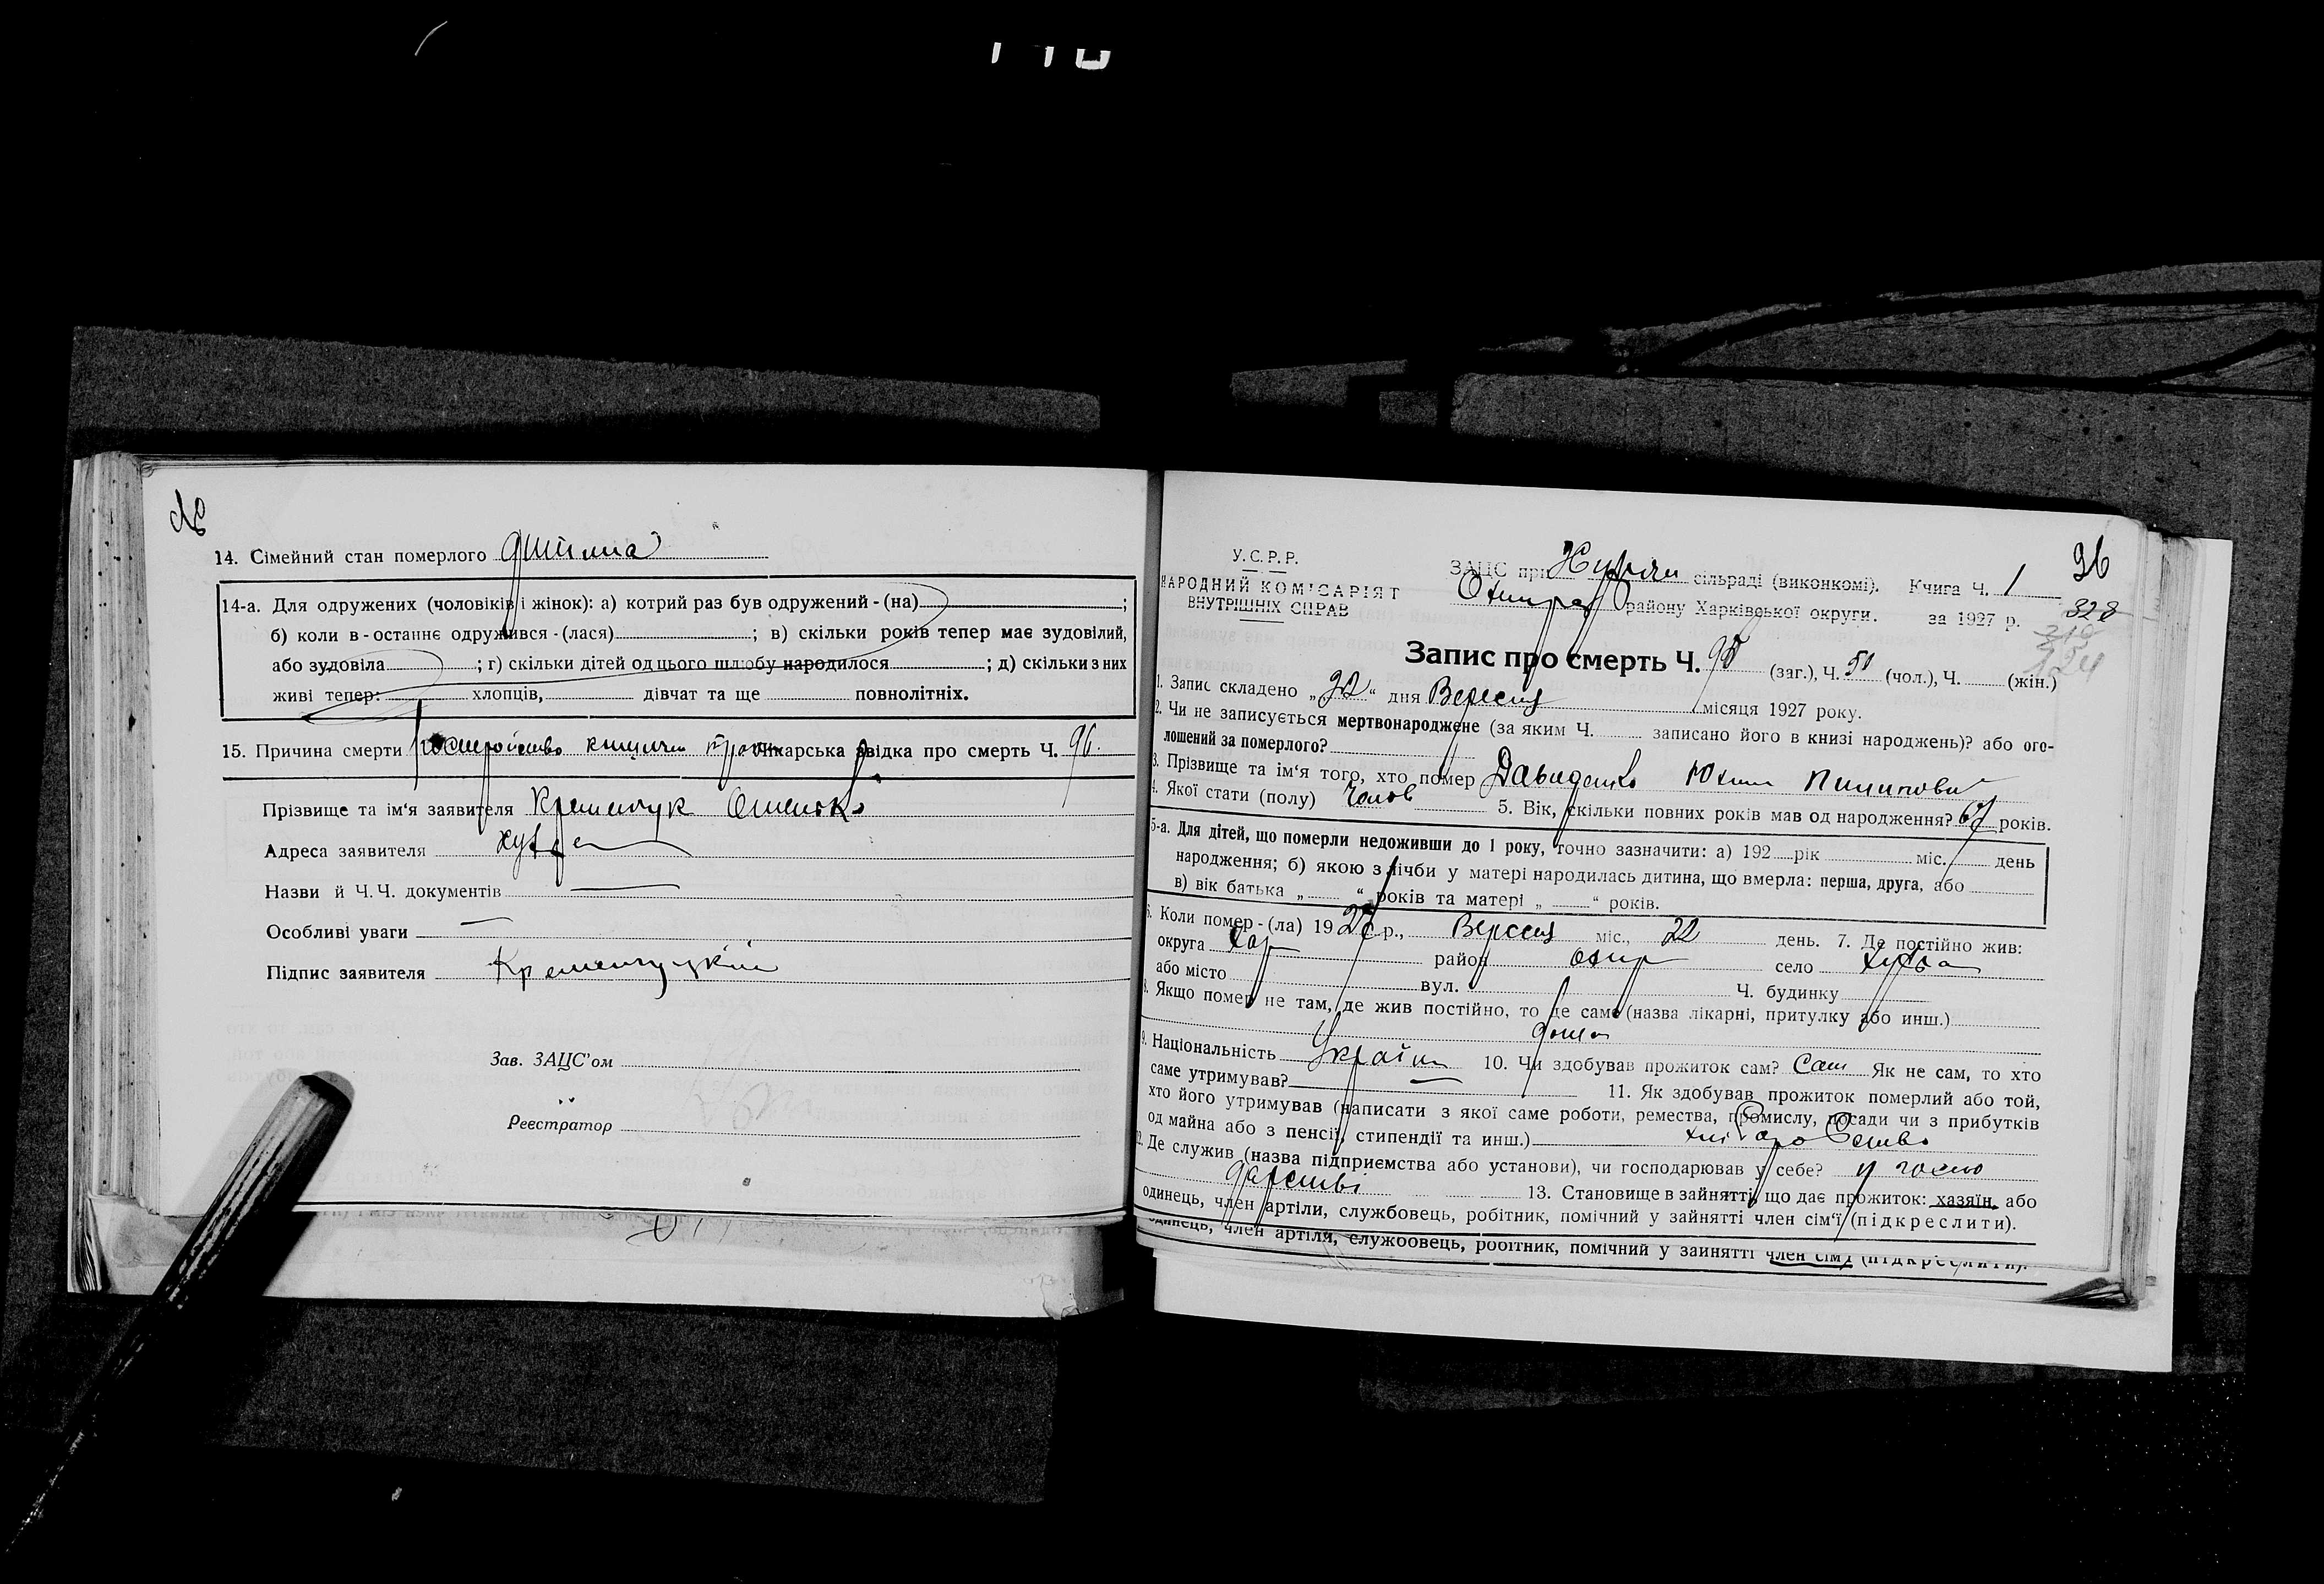 14. Сімейний стан померлого дитина
14-а. Для одружених (чоловіків і жінок): а) котрий раз був одружений - (на) ;
б) коли в - останнє одружився - (лася) ; в) скільки років тепер має зудовілий,
або зудовіла ; г) скільки дітей од цього шлюбу народилося ; д) скільки з них
живі тепер: хлопців, дівчат та ще повнолітніх.
15. Причина смерти Лікарська звідка про смерть Ч.
Прізвище та ім'я заявителя Кременчук
Адреса заявителя
Назви й Ч.Ч. документів
Особливі уваги —
Підпис заявителя Кременчуцкий
Зав. ЗАЦС'ом
Реєстратор
96
У.С.Р.Р. ЗАЦС при сільраді (виконкомі). Книга Ч. 1
НАРОДНИЙ КОМІСАРІЯТ
ВНУТРІШНІХ СПРАВ району Харківської округи. за 1927 р.
328
Запис про смерть Ч. 95 (заг.), Ч. 51 (чол.), Ч. (жін.)
1. Запис складено „22“ дня Вересня місяця 1927 року.
2. Чи не записується мертвонароджене (за яким Ч. записано його в книзі народжень)? або ого-
лошений за померлого?
3. Прізвище та ім'я того, хто помер Давиденко Юхим Пилипови
4. Якої стати (полу) Чолов 5. Вік, скільки повних років мав од народження? 67 років.
5-а. Для дітей, що померли недоживши до 1 року, точно зазначити: а) 192 рік міс. день
народження; б) якою з лічби у матері народилась дитина, що вмерла: перша, друга, або
в) вік батька „ “ років та матері „ “ років.
6. Коли помер - (ла) 1927 р., Вересня міс., 22 день. 7. Де постійно жив:
округа Хар район Охтир село
або місто вул. Ч. будинку
8. Якщо помер не там, де жив постійно, то де саме (назва лікарні, притулку або инш.)
дома
9. Національність Україн 10. Чи здобував прожиток сам? Сам Як не сам, то хто
саме утримував? 11. Як здобував прожиток померлий або той,
хто його утримував (написати з якої саме роботи, ремества, промислу, посади чи з прибутків
од майна або з пенсії, стипендії та инш.) хліборобство
12. Де служив (назва підприємства або установи), чи господарював у себе? у госпо
дарстві 13. Становище в зайнятті, що дає прожиток: хазяїн, або
одинець, член артіли, службовець, робітник, помічний у зайнятті член сім'ї (підкреслити).
одинець, член артіли, службовець, робітник, помічний у зайнятті член сім'ї (підкреслити).